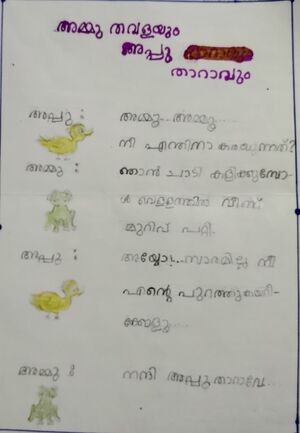 അമ്മു തവളയും
അപ്പു
താറാവും
അപ്പു : അമ്മു... അമ്മൂ......
നീ എന്തിനാ കരയുന്നത്?
അമ്മു : ഞാൻ ചാടി കളിക്കുമ്പോ-
ൾ വെള്ളത്തിൽ വീണ്
മുറിവ് പറ്റി.
അപ്പു : അയ്യോ!.. സാരമില്ല നീ
എന്റെ പുറത്തുകയറി-
ക്കോളൂ....
അമ്മു : നന്ദി അപ്പുതാറാവേ...